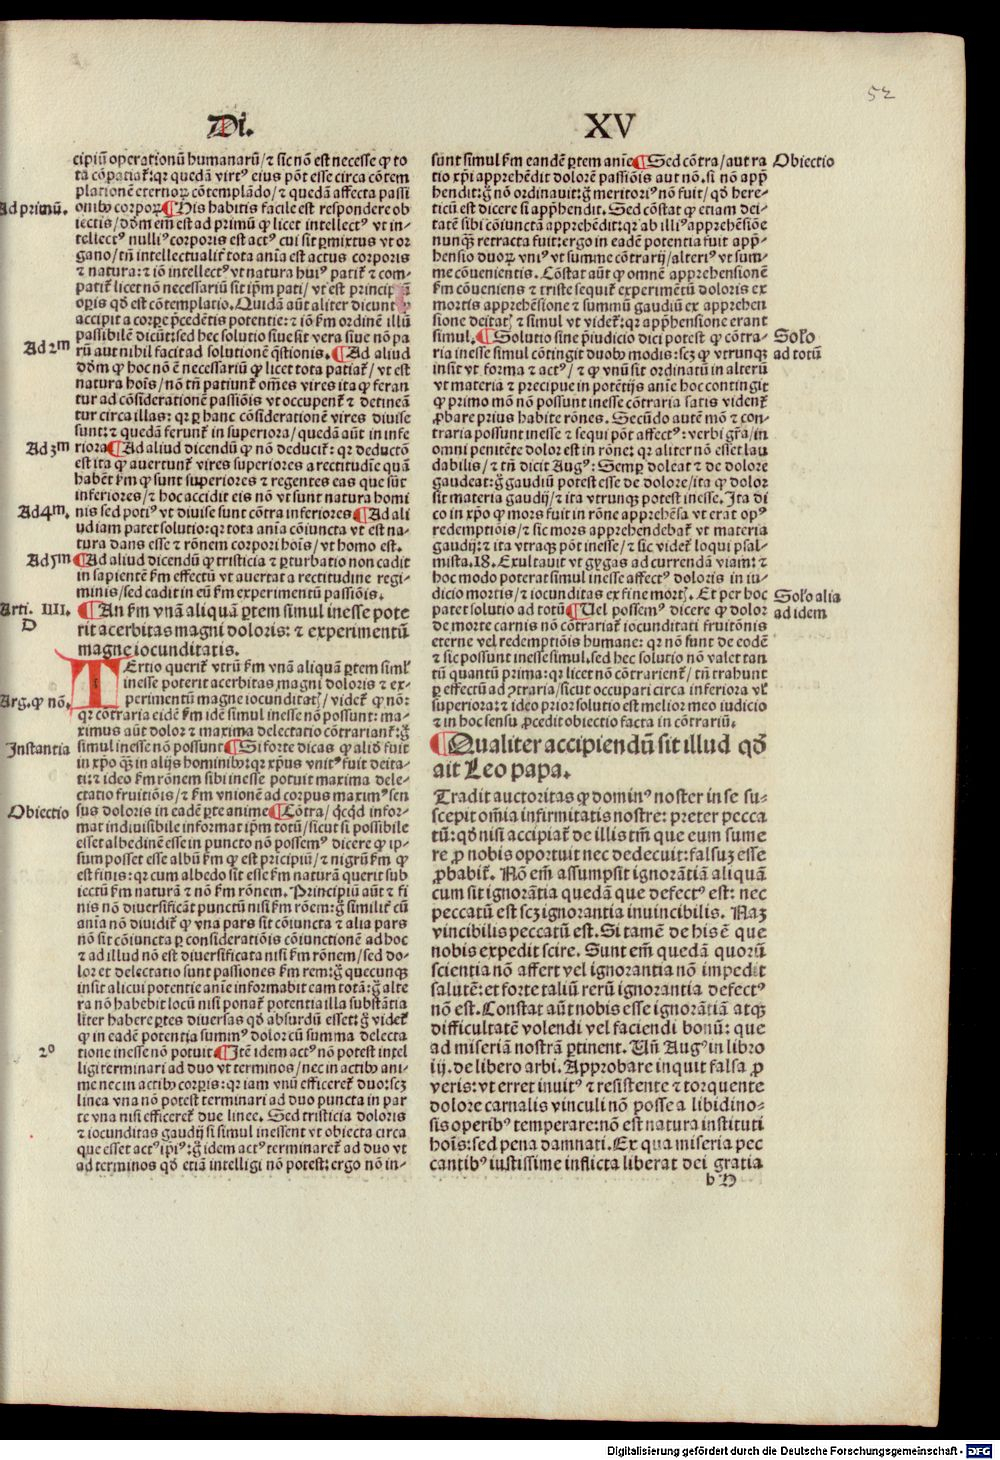 52
Di.
XV
cipiū operationū humanarū/ ⁊ sic nō est necesse ꝙ to
ta cōpatiat᷑: qꝛ quedā virtꝰ eius pōt esse circa cōtem
plationē eternoꝝ cōtemplādo/ ⁊ quedā affecta passi
Ad primū.
onibꝰ corpoꝝ ¶ His habitis facile est respondere ob
iectis/ dd̄m em̄ est ad primū ꝙ licet intellectꝰ vt in-
tellectꝰ nulliꝰ corporis est actꝰ cui sit ꝑmixtus vt or
gano/ tn̄ intellectualit᷑ tota aīa est actus corporis
⁊ natura: ⁊ iō intellectꝰ vt natura huiꝰ patit᷑ ⁊ com-
patit᷑ licet nō necessariū sit ip̄m pati/ vt est princip
oꝑis qd̄ est cōtemplatio. Quidā aūt aliter dicunt
accipit a corꝑe p̄cedētis potentie: ⁊ iō ẜm ordinē illū
passibilē dicūt: sed hec solutio siue sit vera siue nō pa
Ad 2m
rū aut nihil facit ad solutionē q̄stionis. ¶ Ad aliud
dd̄m ꝙ hoc nō ē necessariū ꝙ licet tota patiat᷑/ vt est
natura hoīs/ nō tn̄ patiunt᷑ om̄es vires ita ꝙ feran
tur ad cōsiderationē passiōis vt occupent᷑ ⁊ detineā
tur circa illas: qꝛ ꝑ hanc cōsiderationē vires diuise
sunt: ⁊ quedā ferunt᷑ in superiora/ quedā aūt in infe
Ad 3m
riora ¶ Ad aliud dicendū ꝙ nō deducit᷑: qꝛ deductō
est ita ꝙ auertunt᷑ vires superiores a rectitudīe quā
habēt ẜm ꝙ sunt superiores ⁊ regentes eas que sūt
inferiores/ ⁊ hoc accidit eis nō vt sunt natura homi
Ad 4m.
nis sed potiꝰ vt diuise sunt cōtra inferiores ¶ Ad ali
ud iam patet solutio: qꝛ tota aīa cōiuncta vt est na-
tura dans esse ⁊ rōnem corpori hoīs/ vt homo est.
Ad 5m
¶ Ad aliud dicendū ꝙ tristicia ⁊ ꝑturbatio non cadit
in sapientē ẜm effectū vt auertat a rectitudine regi-
minis/ sed cadit in eū ẜm experimentū passiōis.
Arti. IIII.
D
¶ An ẜm vnā aliquā ꝑtem simul inesse pote
rit acerbitas magni doloris: ⁊ experimentū
magne iocunditatis.
Tertio querit᷑ vtrū ẜm vnā aliquā ꝑtem siml̓
inesse poterit acerbitas magni doloris ⁊ ex-
Arg. ꝙ nō.
perimentū magne iocunditatꝭ/ videt᷑ ꝙ nō:
qꝛ cōtraria eidē ẜm idē simul inesse nō possunt: ma-
ximus aūt dolor ⁊ maxima delectatio cōtrariant᷑: gͦ
Instantia
simul inesse nō possunt ¶ Si forte dicas ꝙ aliđ fuit
in xp̄o qȝ in alijs hominibꝰ: qꝛ xp̄us vnitꝰ fuit deita-
ti: ⁊ ideo ẜm rōnem sibi inesse potuit maxima dele-
ctatio fruitiōis/ ⁊ ẜm vnionē ad corpus maximꝰ sen
Obiectio
sus doloris in eadē ꝑte anime ¶ Cōtra/ qc̄qd infor-
mat indiuisibile informat ip̄m totū/ sicut si possibile
esset albedinē esse in puncto nō possemꝰ dicere ꝙ ip-
sum posset esse albū ẜm ꝙ est prīcipiū/ ⁊ nigrū ẜm ꝙ
est finis: qꝛ cum albedo sit esse ẜm naturā querit sub
iectū ẜm naturā ⁊ nō ẜm rōnem. Principiū aūt ⁊ fi
nis nō diuersificāt punctū nisi ẜm rōem: gͦ similit᷑ cū
anīa nō diuidit᷑ ꝙ vna pars sit cōiuncta ⁊ alia pars
nō sit cōiuncta ꝑ considerationis cōiunctionē ad hoc
⁊ ad illud nō est diuersificata nisi ẜm rōnem/ sed do-
lor et delectatio sunt passiones ẜm rem: gͦ quecunqȝ
insit alicui potentie anīe informabit eam totā: gͦ alte
ra nō habebit locū nisi ponat᷑ potentia illa substātia
liter habere ꝑtes diuersas qd̄ absurdū esset: gͦ videt᷑
ꝙ in eadē potentia summꝰ dolor cū summa delecta
2o
tione inesse nō potuit. ¶ Itē idem actꝰ nō potest intel
ligi terminari ad duo vt terminos/ nec in actibꝰ ani-
me nec in actibꝰ corꝑis: qꝛ iam vnū efficeret᷑ duo: scȝ
linea vna nō potest terminari ad duo puncta in par
te vna nisi efficeret᷑ due linee. Sed tristicia doloris
⁊ iocunditas gaudij si simul inessent vt obiecta circa
que esset actꝰ ip̄iꝰ: gͦ idem actꝰ terminaret᷑ ad duo vt
ad terminos qd̄ etiā intelligi nō potest: ergo nō in-
sunt simul ẜm eandē ꝑtem anīe ¶ Sed cōtra/ aut ra
Obiectio
tio xp̄i apprehēdit dolorē passiōis aut nō. si nō app̄
hendit: gͦ nō ordinauit: gͦ meritoriꝰ nō fuit/ qd̄ here-
ticū est dicere si app̄hendit. Sed cōstat ꝙ etiam dei-
tatē sibi cōiunctā app̄hēdit: qꝛ ab illiꝰ app̄hēsiōne
nunqȝ retracta fuit: ergo in eadē potentia fuit app̄-
hensio duoꝝ vniꝰ vt summe cōtrarij/ alteriꝰ vt sum-
me cōuenientis. Cōstat aūt ꝙ omnē apprehensionē
ẜm cōueniens ⁊ triste sequit᷑ experimētū doloris ex
mortis apprehēsione ⁊ summū gaudiū ex apprehen
sione deitatꝭ ⁊ simul vt videt᷑: qꝛ app̄hensione erant
Solo
ad totū
simul. ¶ Solutio sine p̄iudicio dici potest ꝙ cōtra-
ria inesse simul cōtingit duobꝰ modis: scȝ ꝙ vtrunqȝ
insit vt forma ⁊ actꝰ/ ⁊ ꝙ vnū sit ordinatū in alterū
vt materia ⁊ precipue in potētijs anīe hoc contingit
ꝙ primo mō nō possunt inesse cōtraria satis vident᷑
ꝓbare prius habite rōnes. Secūdo autē mō ⁊ con-
traria possunt inesse ⁊ sequi pōt affectꝰ: verbi gr̄a/ in
omni penitēte dolor est in rōne: qꝛ aliter nō esset lau
dabilis/ ⁊ tn̄ dicit Augꝰ: Semꝑ doleat ⁊ de dolore
gaudeat: gͦ gaudiū potest esse de dolore/ ita ꝙ dolor
sit materia gaudij/ ⁊ ita vtrunqȝ potest inesse. Ita di
co in xp̄o ꝙ mors fuit in rōne apprehēsa vt erat opꝰ
redemptiōis/ ⁊ sic mors apprehendebat᷑ vt materia
gaudij: ⁊ ita vtraqȝ pōt inesse/ ⁊ sic videt᷑ loqui psal-
mista. 18. Exultauit vt gygas ad currendā viam: ⁊
hoc modo poterat simul inesse affectꝰ doloris in iu-
Solo alia
ad idem
dicio mortis/ ⁊ iocunditas ex fine mortꝭ. Et per hoc
patet solutio ad totū ¶ Uel possemꝰ dicere ꝙ dolor
de morte carnis nō cōtrariat᷑ iocunditati fruitōnis
eterne vel redemptiōis humane: qꝛ nō sunt de eodē
⁊ sic possunt inesse simul. sed hec solutio nō valet tan
tū quantū prima: qꝛ licet nō cōtrarient᷑/ tn̄ trahunt
ꝑ effectū ad ꝯtraria/ sicut occupari circa inferiora vl̓
superiora: ⁊ ideo prior solutio est melior meo iudicio
⁊ in hoc sensu ꝓcedit obiectio facta in cōtrariū.
¶ Qualiter accipiendū sit illud qd̄
ait Leo papa.
Tradit auctoritas ꝙ dominꝰ noster in se su-
scepit om̄ia infirmitatis nostre: preter pecca
tū: qd̄ nisi accipiat᷑ de illis tm̄ que eum sume
re ꝓ nobis oportuit nec dedecuit: falsuȝ esse
ꝓbabit᷑. Nō em̄ assumpsit ignorātiā aliquā
cum sit ignorātia quedā que defectꝰ est: nec
peccatū est scȝ ignorantia inuincibilis. Naȝ
vincibilis peccatū est. Si tamē de his ē que
nobis expedit scire. Sunt em̄ quedā quorū
scientia nō affert vel ignorantia nō impedit
salutē: et forte taliū rerū ignorantia defectꝰ
nō est. Constat aūt nobis esse ignorātiā atqȝ
difficultatē volendi vel faciendi bonū: que
ad miseriā nostrā ꝑtinent. Un̄ Augꝰ in libro
iij. de libero arbi. Approbare inquit falsa ꝓ
veris: vt erret inuitꝰ ⁊ resistente ⁊ torquente
dolore carnalis vinculi nō posse a libidino-
sis operibꝰ temperare: nō est natura instituti
hoīs: sed pena damnati. Ex qua miseria pec
cantibꝰ iustissime inflicta liberat dei gratia
Digitalisierung gefördert durch die Deutsche Forschungsgemeinschaft - DFG